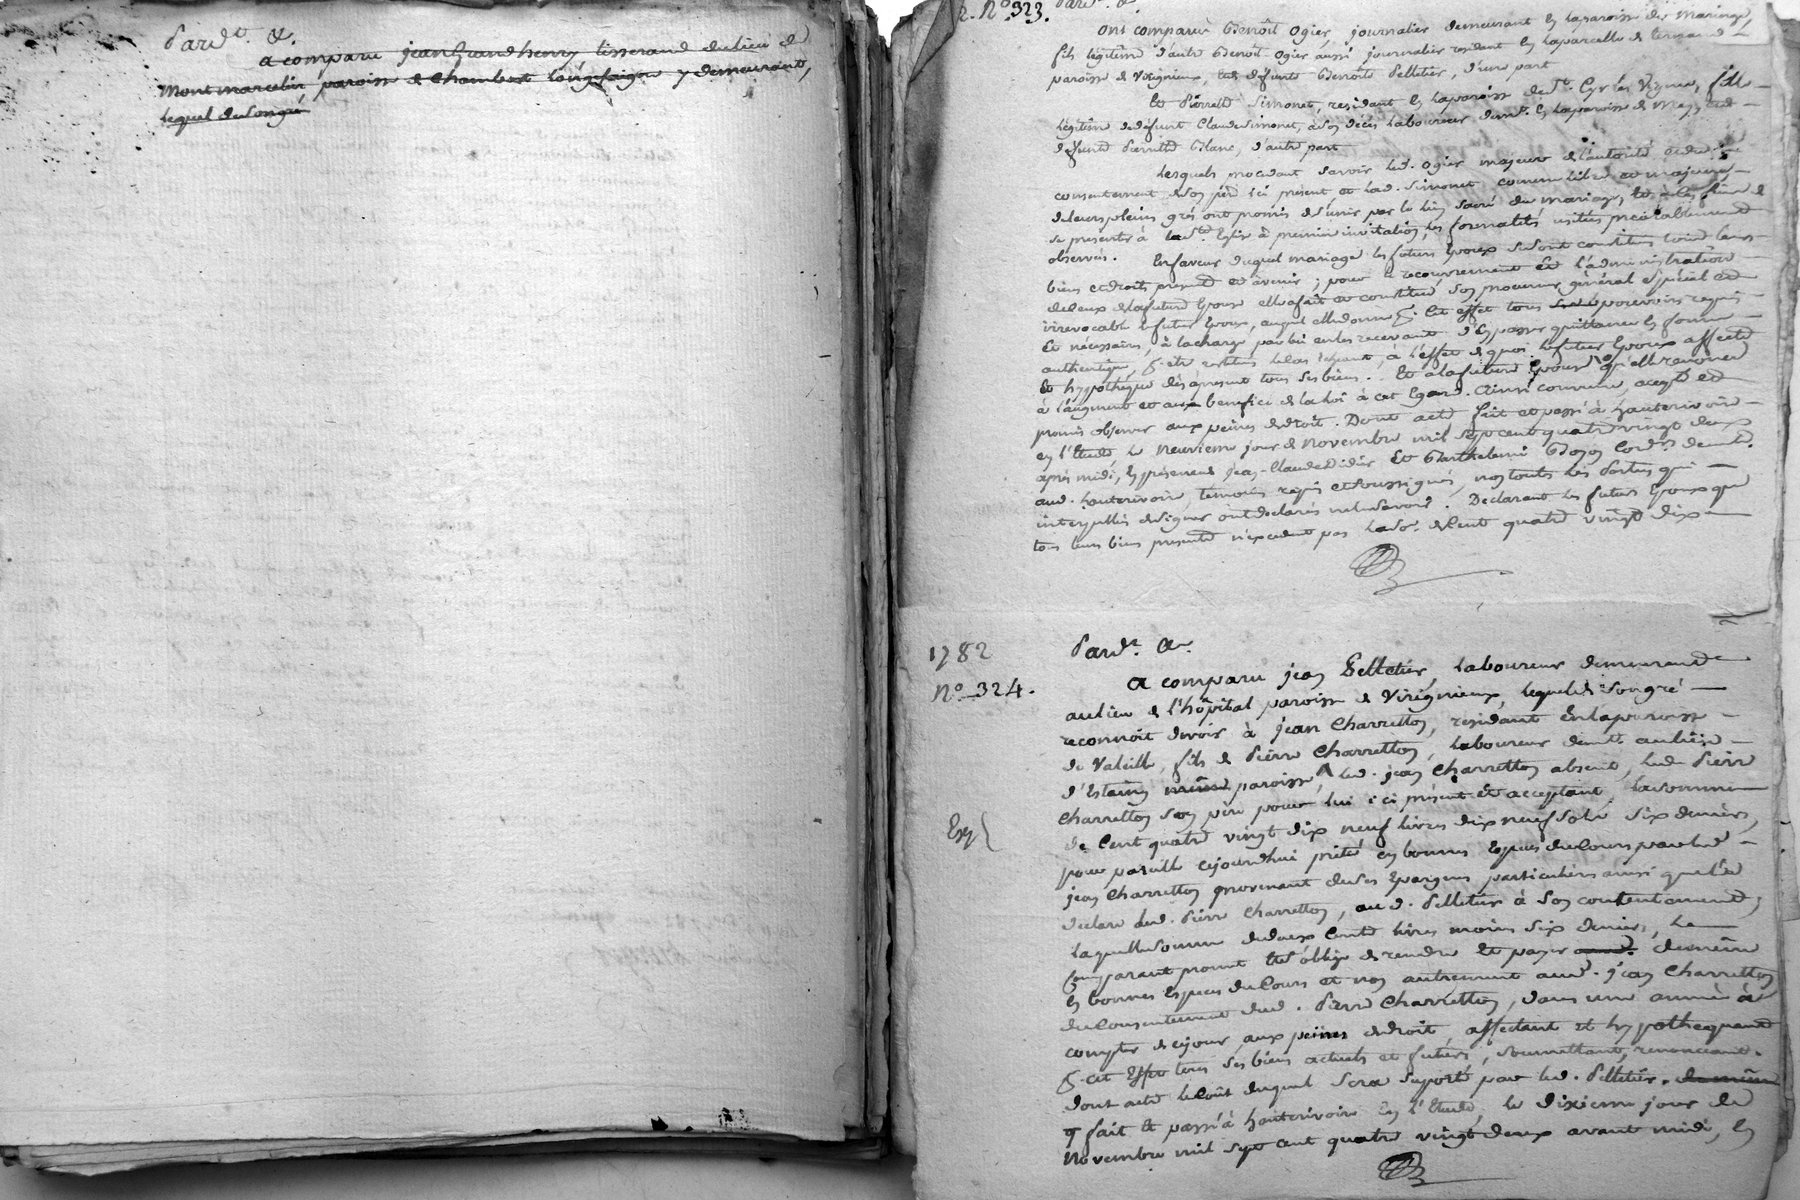 Pard.t &.
a comparu jean Grand henry tisserand du lieu de
Montmarcelin, paroisse de Chambost Longesaigne y demeurant,
lequel de son gré
R. N.o 323.
Pard.t &.
Ont comparu Benoît Ogier, journalier demeurant en la paroisse de
fils légitime d'autre Benoît Ogier aussi journalier résidant en la parcelle de
paroisse de Virignieux, et de défunte Benoîte Pelletier, d'une part
Et Pierrette Simonet, résidant en la paroisse de S.t Cyr les Vignes, fille
légitime de défunt Claude Simonet, à son décès laboureur dem.t en la paroisse de et de
défunte Pierrette Blanc, d'autre part
Lesquels procédant savoir led. Ogier majeur de l'autorité et du
consentement de son père ici présent et lad. Simonet comme libre et majeure
de leurs pleins grés ont promis de s'unir par le lien sacré du mariage, et à ces fins de
se présenter à la S.te Eglise à première invitation, les formalités usitées préalablement
observées. En faveur duquel mariage les futurs Epoux se sont constitués tous leurs
biens et droits présents et avenir ; pour le recouvrement et l'administration
de ceux de la future Epouse elle a fait et constitué son procureur général espécial et
irrévocable le futur Epoux, auquel elle donne p.r cet effet tous pouvoirs requis
et nécessaires, à la charge par lui en les recevant d'en passer quittance en forme
authentique, p.r être restitués le cas échéant, à l'effet de quoi le futur Epoux affecte
et hypothèque dès à présent tous ses biens. Et a la future Epouse renoncé
à l'augment et aux bénéfice de la loi à cet égard. Ainsi convenu, accepté et
promis observer aux peines de droit. Dont acte fait et passé à hauterivoire
en l'Etude le neuvième jour de Novembre mil sept cent quatre vingt deux
après midi, en présence de jean-Claude Didier et Barthelemi Bozon Cord.rs dem.t
aud. hauterivoire témoins requis et soussignés, non toutes les Parties qui
interpellées de signer ont déclarés ne le savoir. Déclarant les futurs Epoux que
tous leurs biens présents n'excèdent pas la so.e de Cent quatre vingt dix
1782
N.o 324.
Pard.t &.
a comparu jean Pelletier, laboureur demeurant
au lieu de l'hôpital paroisse de Virignieux, lequel de son gré
reconnoit devoir à jean Charretton, résidant en la paroisse
de Valeille, fils de Pierre Charretton, laboureur dem.t au lieu
d'Estaing même paroisse, led. jean Charretton absent, led. Pierre
Charretton son père pour lui ici présent et acceptant, la somme
de Cent quatre vingt dix neuf livres dix neuf sols six deniers,
Exp.
pour pareille cejourdhui prêtée en bonnes Espèces du Cours par led.
jean Charretton provenant de ses Epargnes particulières ainsi que l'a
déclaré led. Pierre Charretton, aud. Pelletier à son contentement ;
laquelle somme de deux cents livres moins six deniers, le
Comparant promet et s'oblige de rendre et payer de même
en bonnes Espèces du Cours et non autrement aud. jean Charretton
du Consentement dud. Pierre Charretton, dans une année à
compter de cejour, aux peines de droit, affectant et hypothequant
p.r cet Effet tous ses biens actuels et futurs, soumettant, renonçant.
dont acte le coût duquel sera suporté par led. Pelletier.
fait et passé à hauterivoire en l'Etude, le dixième jour de
Novembre mil sept cent quatre vingt deux avant midi, en